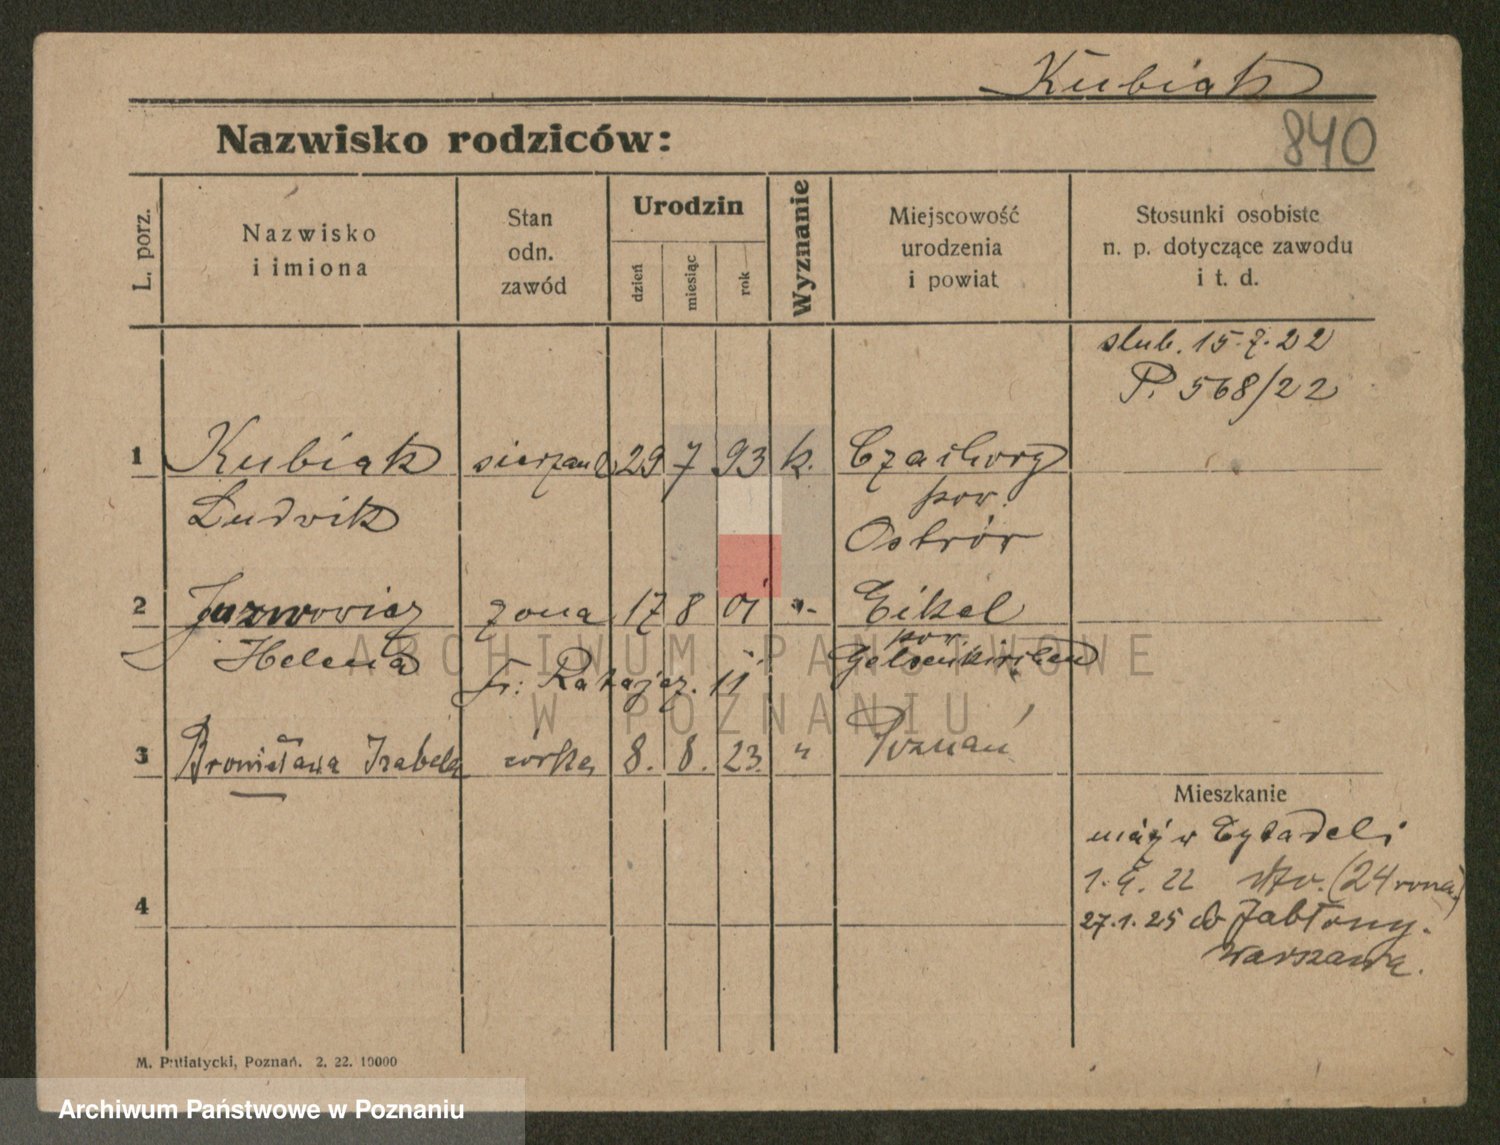 Kubiak
Nazwisko rodziców:
840
L. porz.
Nazwisko
i imiona
Stan
odn.
zawód
Urodzin
dzień
miesiąc
rok
Wyznanie
Miejscowość
urodzenia
i powiat
Stosunki osobiste
n. p. dotyczące zawodu
i t. d.
slub. 15.7.22
P. 568/22
1 Kubiak sierżant 29 7 93 k.
Ludwik
pow.
Ostrór
2 żona 17 8 01 "
Helena
Eikel
pow.
Gelsenkirchen
Fr: Ratajcz. 11
3 Bronisława Izabela córka 8. 8. 23. " Poznań
Mieszkanie
mąż w Cytadeli
22 (24
27.1.25 do Jabłony.
Warszawa.
4
M. Putiatycki, Poznań. 2. 22. 10000
ARCHIWUM PAŃSTWOWE
W POZNANIU
Archiwum Państwowe w Poznaniu